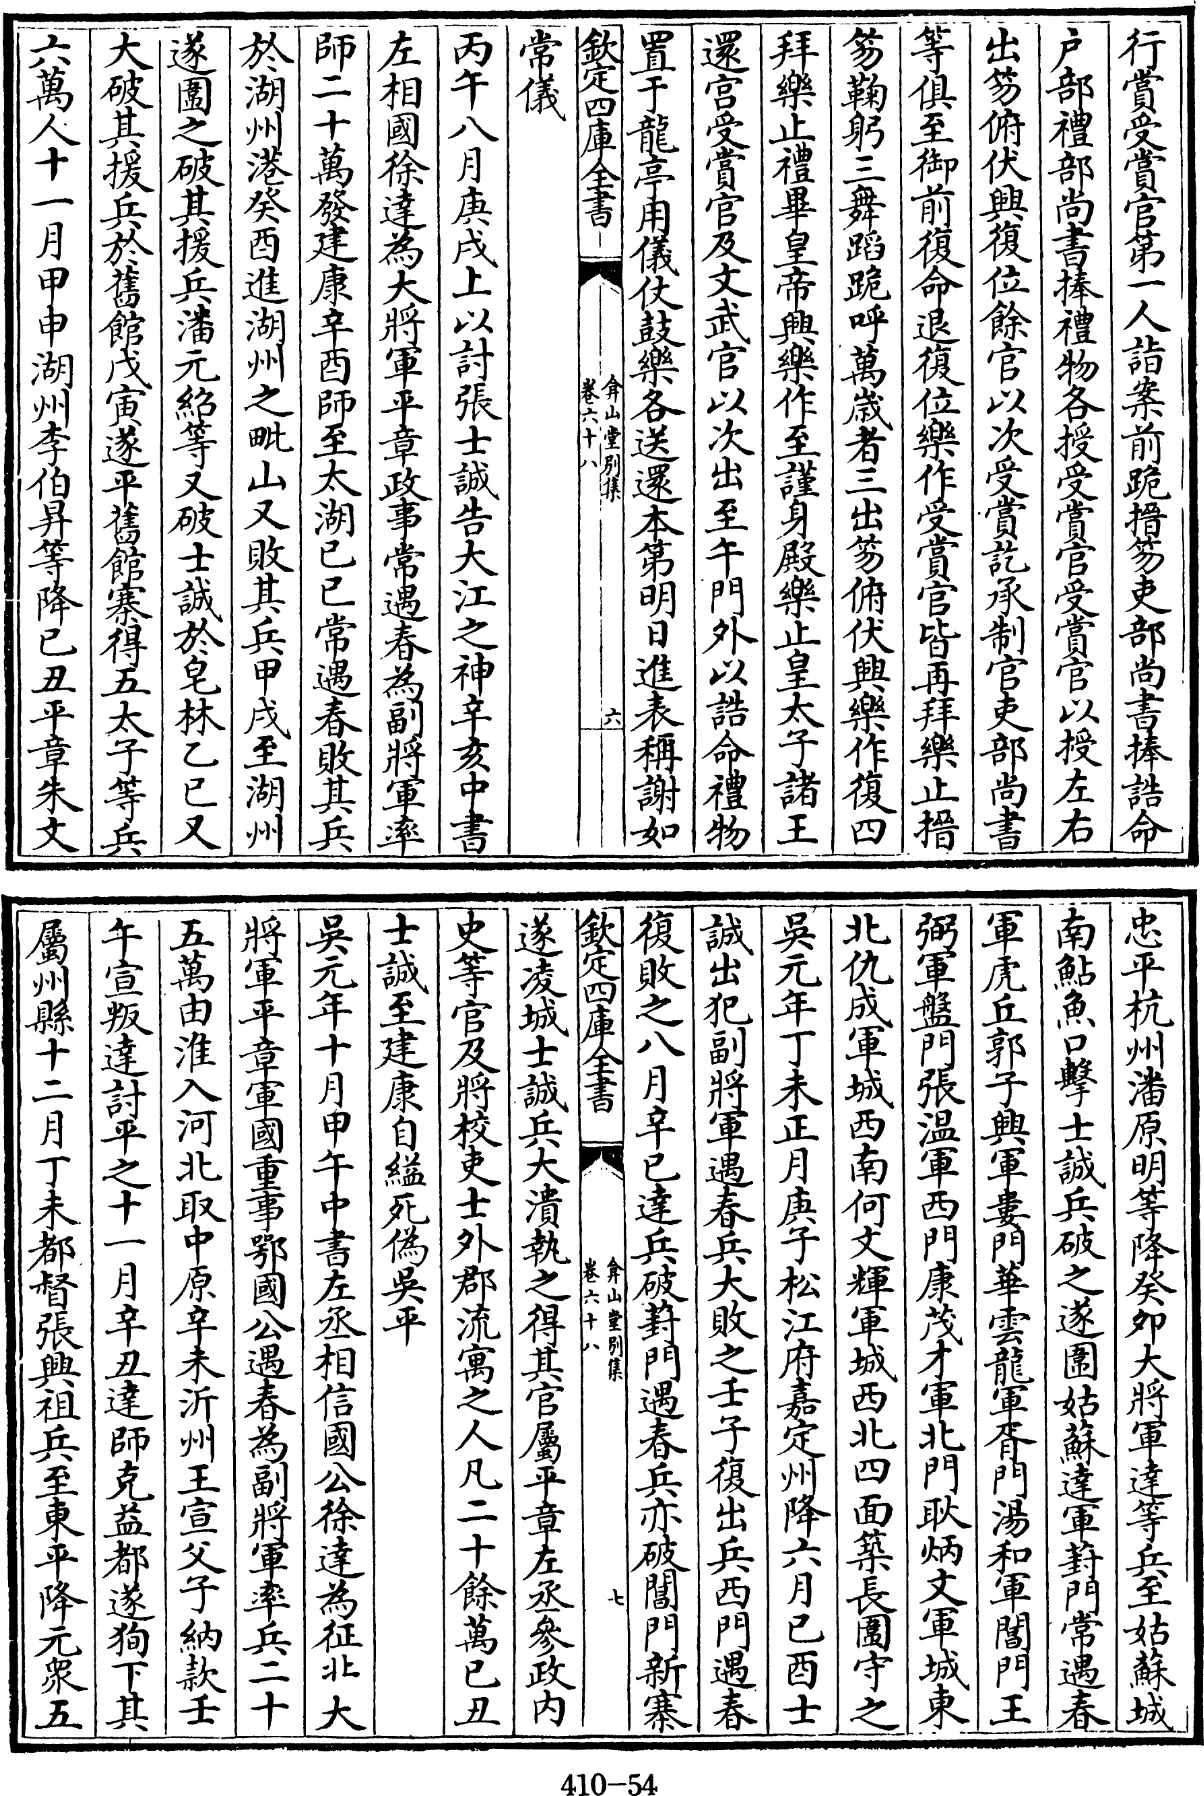 行賞受賞官第一人詣案前跪搢笏吏部尚書捧誥命
户部禮部尚書捧禮物各授受賞官受賞官以授左右
出笏俯伏興復位餘官以次受賞訖承制官吏部尚書
等俱至御前復命退復位樂作受賞官皆再拜樂止搢
笏鞠躬三舞蹈跪呼萬歲者三出笏俯伏興樂作復四
拜樂止禮畢皇帝興樂作至謹身殿樂止皇太子諸王
還宫受賞官及文武官以次出至午門外以誥命禮物
置于龍亭用儀仗鼓樂各送還本第明日進表稱謝如
欽定四庫全書 弇山堂别集 卷六十八 六
常儀
丙午八月庚戌上以討張士誠告大江之神辛亥中書
左相國徐達為大將軍平章政事常遇春為副將軍率
師二十萬發建康辛酉師至太湖已巳常遇春敗其兵
於湖州港癸酉進湖州之毗山又敗其兵甲戌至湖州
遂圍之破其援兵潘元紹等又破士誠於皂林乙巳又
大破其援兵於舊館戊寅遂平舊館寨得五太子等兵
六萬人十一月甲申湖州李伯昇等降已丑平章朱文
忠平杭州潘原明等降癸夘大將軍達等兵至姑蘇城
南鮎魚口擊士誠兵破之遂圍姑蘇達軍葑門常遇春
軍虎丘郭子興軍婁門華雲龍軍胥門湯和軍閶門王
弼軍盤門張温軍西門康茂才軍北門耿炳文軍城東
北仇成軍城西南何文輝軍城西北四面築長圍守之
吳元年丁未正月庚子松江府嘉定州降六月已酉士
誠出犯副將軍遇春兵大敗之壬子復出兵西門遇春
復敗之八月辛巳達兵破葑門遇春兵亦破閶門新寨
欽定四庫全書 弇山堂别集 卷六十八 七
遂凌城士誠兵大潰執之得其官屬平章左丞參政内
史等官及將校吏士外郡流寓之人凡二十餘萬已丑
士誠至建康自縊死偽吳平
吳元年十月甲午中書左丞相信國公徐達為征北大
將軍平章軍國重事鄂國公遇春為副將軍率兵二十
五萬由淮入河北取中原辛未沂州王宣父子納款壬
午宣叛達討平之十一月辛丑達師克益都遂狥下其
屬州縣十二月丁未都督張興祖兵至東平降元衆五
410-54